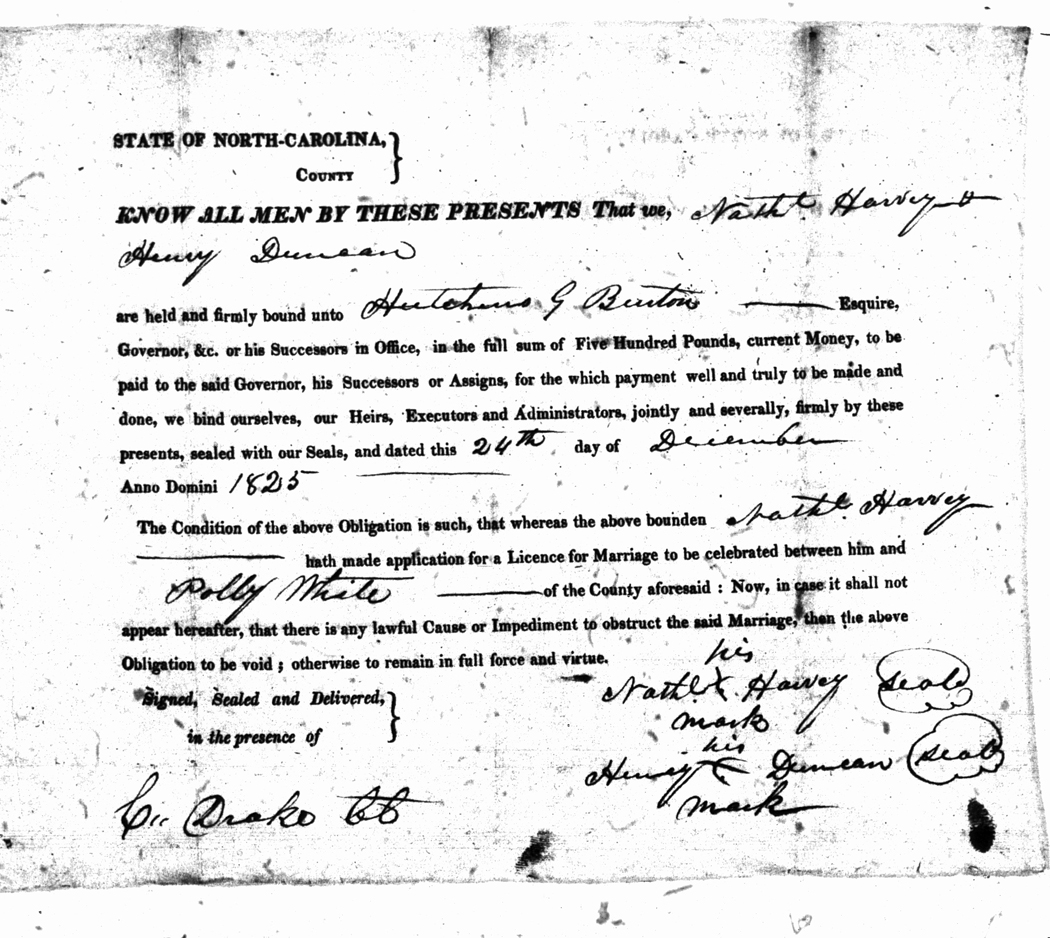 STATE OF NORTH-CAROLINA,
COUNTY
KNOW ALL MEN BY THESE PRESENTS That we, Nathl. Harvey &
Henry Duncan
are held and firmly bound unto Hutchins G Burton Esquire,
Governor, &c. or his Successors in Office, in the full sum of Five Hundred Pounds, current Money, to be
paid to the said Governor, his Successors or Assigns, for the which payment well and truly to be made and
done, we bind ourselves, our Heirs, Executors and Administrators, jointly and severally, firmly by these
presents, sealed with our Seals, and dated this 24th day of December
Anno Domini 1825
The Condition of the above Obligation is such, that whereas the above bounden Nathl. Harvey
hath made application for a Licence for Marriage to be celebrated between him and
Polly White of the County aforesaid : Now, in case it shall not
appear hereafter, that there is any lawful Cause or Impediment to obstruct the said Marriage, then the above
Obligation to be void ; otherwise to remain in full force and virtue.
his
Signed, Sealed and Delivered, Nathl. X Harvey seal
mark
in the presence of his
Henry X Duncan seal
mark
Drake